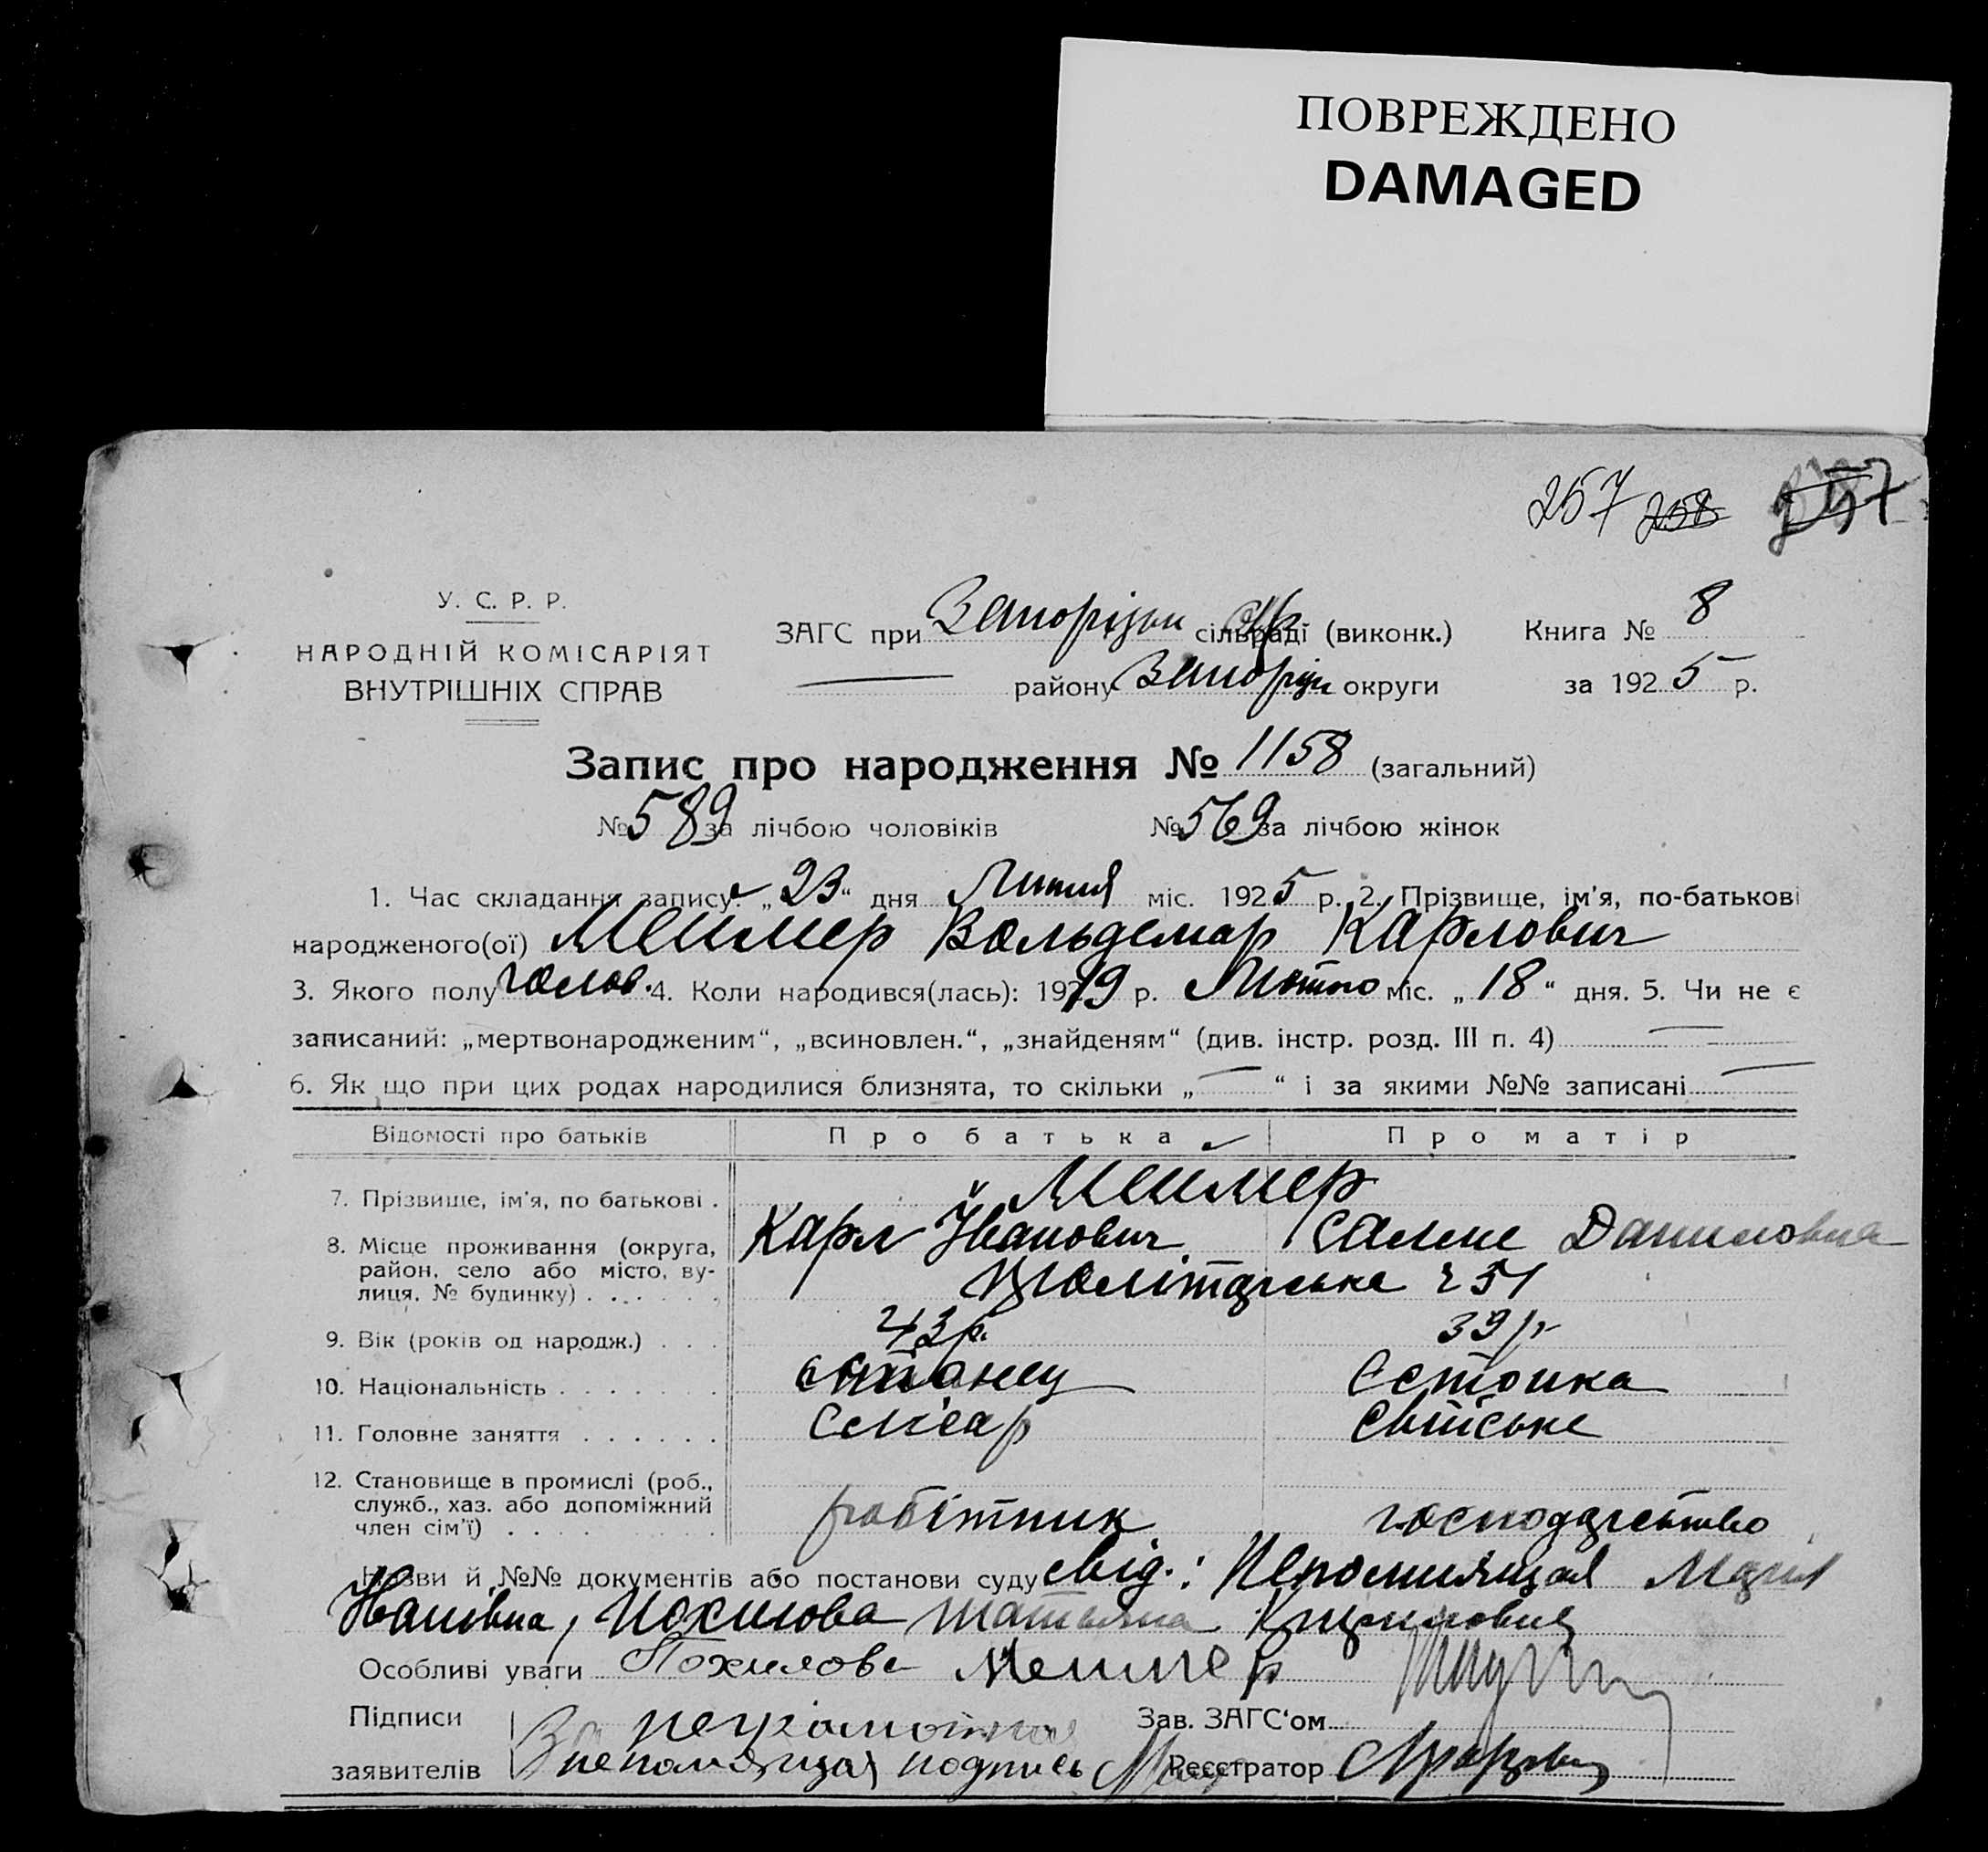 ПОВРЕЖДЕНО
DAMAGED
257 258
У. С. Р. Р.
НАРОДНІЙ КОМІСАРІЯТ
ВНУТРІШНІХ СПРАВ
ЗАГС при Запорізьк сільраді (виконк.) Книга № 8
району Запоріз округи за 1925 р.
Запис про народження № 1158 (загальний)
№ 589 за лічбою чоловіків № 569 за лічбою жінок
1. Час складання запису: „23“ дня Липня міс. 1925 р. 2. Прізвище, ім'я, по-батькові
народженого(ої) Меймер Вольдемар Карлович
3. Якого полу чолов. 4. Коли народився(лась): 1919 р. Лютого міс. „18“ дня. 5. Чи не є
записаний: „мертвонародженим“, „всиновлен.“, „знайденям“ (див. інстр. розд. III п. 4)
6. Як що при цих родах народилися близнята, то скільки „ “ і за якими №№ записані
Відомості про батьків Про батька Про матір
7. Прізвище, ім'я, по батькові . Меймер
Карл Іванович Салме Даниловна
8. Місце проживання (округа, район, село або місто, вулиця, № будинку) . . . . . . Пролітарська 51
9. Вік (років од народж.) . . . 43 р. 39 р
10. Національність . . . . . . . Естонка
11. Головне заняття . . . . . . Слюсар Хатське
12. Становище в промислі (роб., служб., хаз. або допоміжний член сім'ї) . . . . . робітник господарство
Назви й №№ документів або постанови суду свід.: Непомнящая Марія
Іванівна, Похилова Татьяна
Особливі уваги Похилова Меймер
Підписи За неграмотная Зав. ЗАГС‘ом
заявителів непомящая подпись Реєстратор